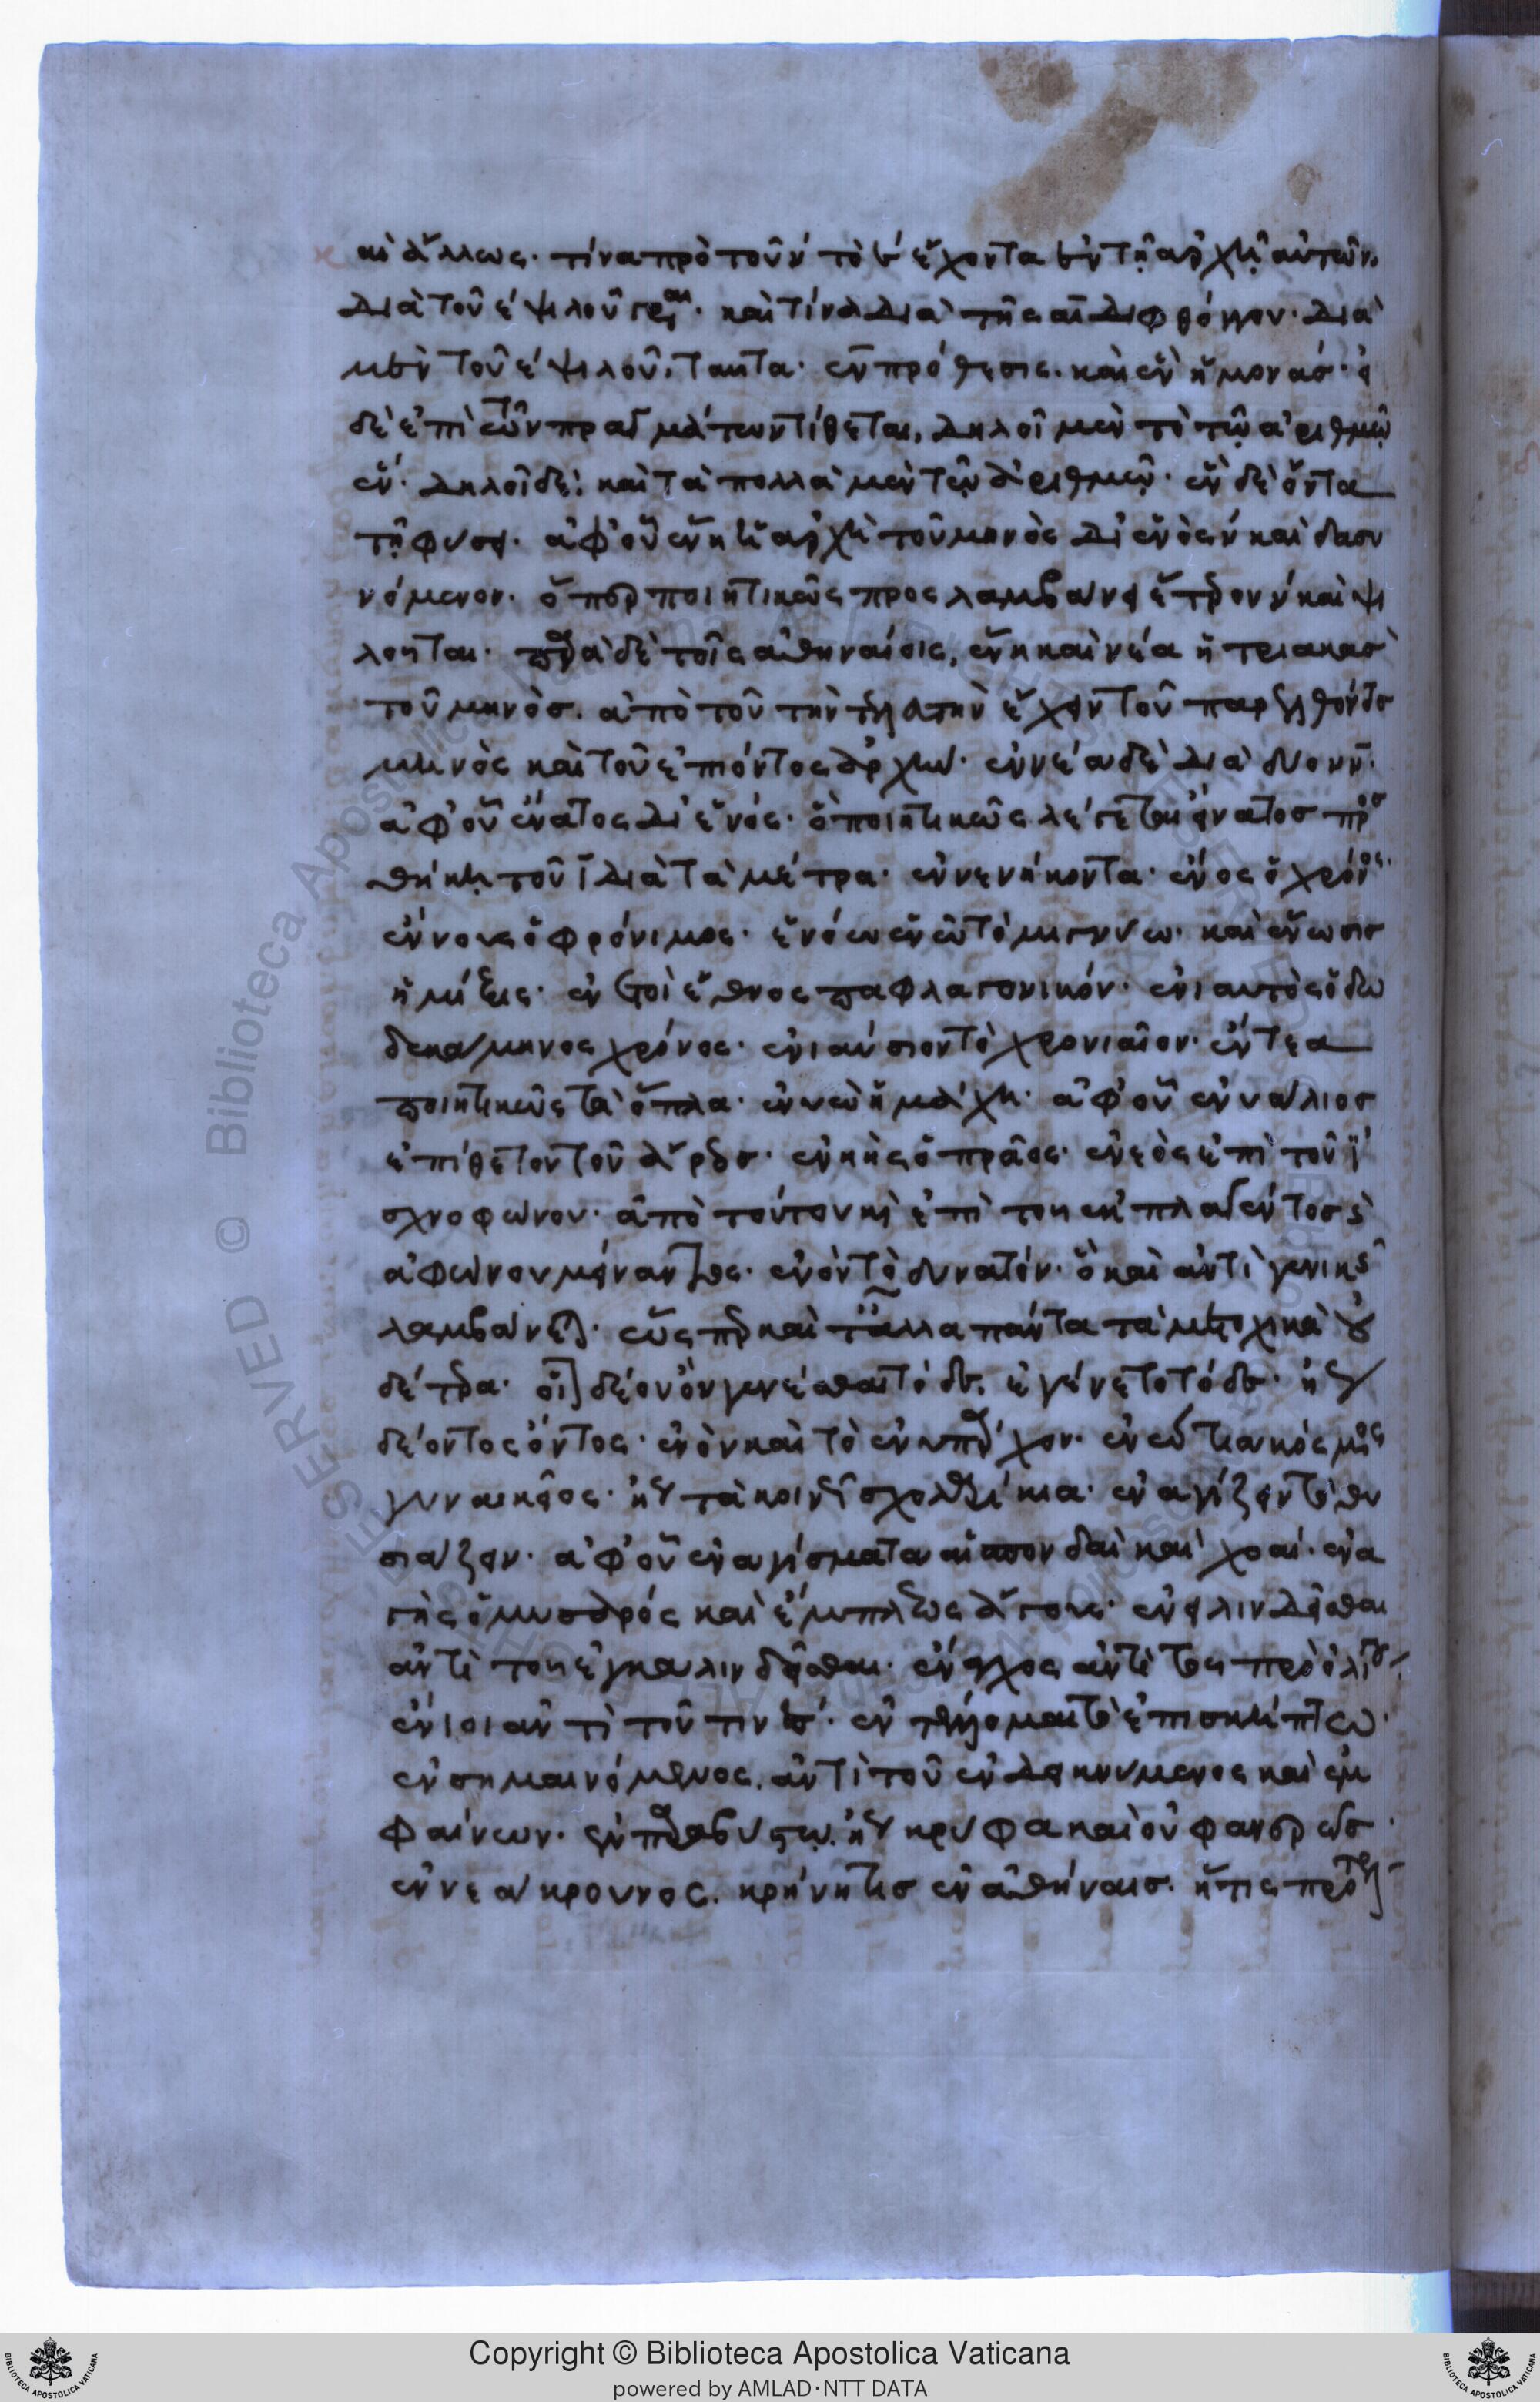 αὶ ἄλλως· τίνα πρὸ τοῦ ν τὸ ε ἔχοντα ἐν τῇ ἀρχῇ αὐτῶν,
διὰ τοῦ ε ψιλοῦ καὶ τίνα διὰ τῆς αι διφθόγγου· διὰ
μὲν τοῦ ε ψιλοῦ, ταῦτα· ἐν πρόθεσις· καὶ ἓν ἡ μονάσ·
δὲ ἐπὶ τῶν πραγμάτων τίθεται, δηλοῖ μὲν τὸ τῷ ἀριθμῷ
ἕν· δηλοῖ δὲ καὶ τὰ πολλὰ μὲν τῷ ἀριθμῷ· ἓν δὲ ὄντα
τῇ φύσει· ἀφ' οὗ ἕνη ἡ ἀρχὴ τοῦ μηνὸς δι' ἑνὸς ν καὶ δασυ
νόμενον· ὅπερ ποιητικῶς προσλαμβάνει ἕτερον ν καὶ ψι
λοῦται· παρὰ δὲ τοῖς ἀθηναίοις, ἕνη καὶ νέα ἡ τριακὰσ
τοῦ μηνόσ. ἀπὸ τοῦ τὴν τελευτὴν ἔχειν τοῦ παρελθόντοσ
μηνὸς καὶ τοῦ ἐπιόντος ἀρχήν· ἐννέα δὲ διὰ δύο νν·
ἀφ' οὗ ἔνατος δι' ἑνός· ὃ ποιητικῶς λέγεται εἴνατοσ προσ
θήκῃ τοῦ ϊ διὰ τὰ μέτρα· ἐννενήκοντα· ἔνος ὁ χρόνος·
ἔννους ὁ φρόνιμος· ἑνόω ἑνῶ τὸ μιγνύω· καὶ ἕνωσισ
ἡ μίξις· ἐνετοὶ ἔθνος παφλαγονικόν· ἐνιαυτὸς ὁ δω
δεκάμηνος χρόνος· ἐνιαύσιον τὸ χρονιαῖον· ἔντεα
ποιητικῶς τὰ ὅπλα· ἐνυὼ ἡ μάχη· ἀφ' οὗ ἐνυάλιοσ
ἐπίθετον τοῦ ἄρεοσ· ἐνηὴς ὁ πρᾶος· ἐνεὸς ἐπὶ τοῦ ἰ
σχνοφώνου· ἀπὸ τούτου καὶ ἐπὶ του ἐκπλαγέντος
ἀφώνου μείναντος· ἐνὸν τὸ δυνατόν· ὃ καὶ ἀντὶ γενικῆσ
λαμβάνεται· ὥσπερ καὶ τἄλλα πάντα τὰ μετοχικὰ οὐ
δέτερα· οἷον δέον ὂν γενέσθαι τόδε, ἐγένετο τόδε· ἤγουν
δέοντος ὄντος· ἐνὸν καὶ τὸ ἐνυπάρχον·
γυναικεῖος· σχολαρίκια· ἐναγίζειν τὸ θυ
σιάζειν· ἀφ' οὗ ἐναγίσματα αἱ σπονδαὶ καὶ χοαί· ἐνα
γὴς ὁ μυσαρός καὶ ἔμπλεως ἄγους· ἐνειλινδεῖσθαι
ἀντὶ του ἐγκαλινδεῖσθαι· ἔναγχος ἀντὶ του πρὸ ὀλίγου
ἔνιοι ἀντὶ τοῦ τινές· ἐνσκήπτομαι τὸ ἐπισκήπτω·
ἐνσημαινόμενος, ἀντὶ τοῦ ἐνδεικνύμενος καὶ ἐμ
φαίνων· ἐν παραβύστῳ· ἤγουν κρύφα καὶ οὐ φανερῶσ·
ἐννεάκρουνος. κρήνη τισ ἐν ἀθήναισ. ἥτις πρότερον